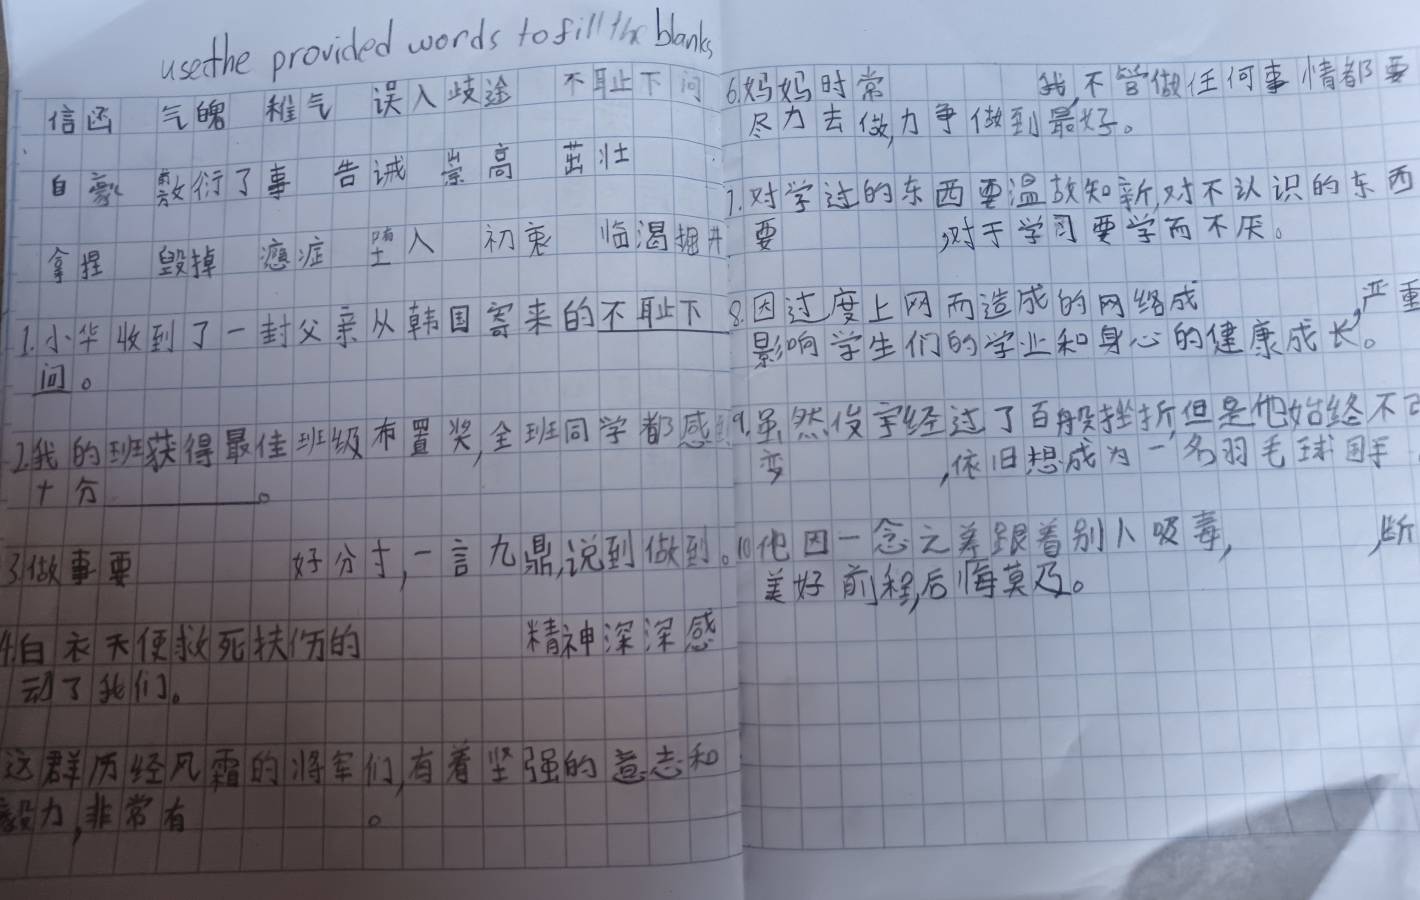 use the provided words to fill the blanks
信函 气魄 稚气 误入歧途 不耻下问
自豪 敷衍了事 告诫 崇高 茁壮
拿捏 毁掉 瘾症 堕入 初衷 临渴掘井
1.小华收到了一封父亲从韩国寄来的不耻下
问。
2.我的班获得最佳班级布置奖,全班同学都感
十分 。
3.做事要 好分寸,一言九鼎,说到做到。
4.白衣天使救死扶伤的 精神深深感
动了我们。
这群历经风霜的将军们,有着坚强的意志和
毅力,非常有 。
6.妈妈时常 我,不管做任何事情都要
尽力去做,力争做到最好。
7.对学过的东西要温故知新,对不认识的东西
要 ,对于学习要学而不厌。
8.因过度上网而造成的网络成 ,严重
影响学生们的学业和身心的健康成长。
9.虽然俊宇经过了百般挫折,但是他始终不改
变 ,依旧想成为一名羽毛球国手
10.他因一念之差跟着别人吸毒, ,断
美好前程,后悔莫及。